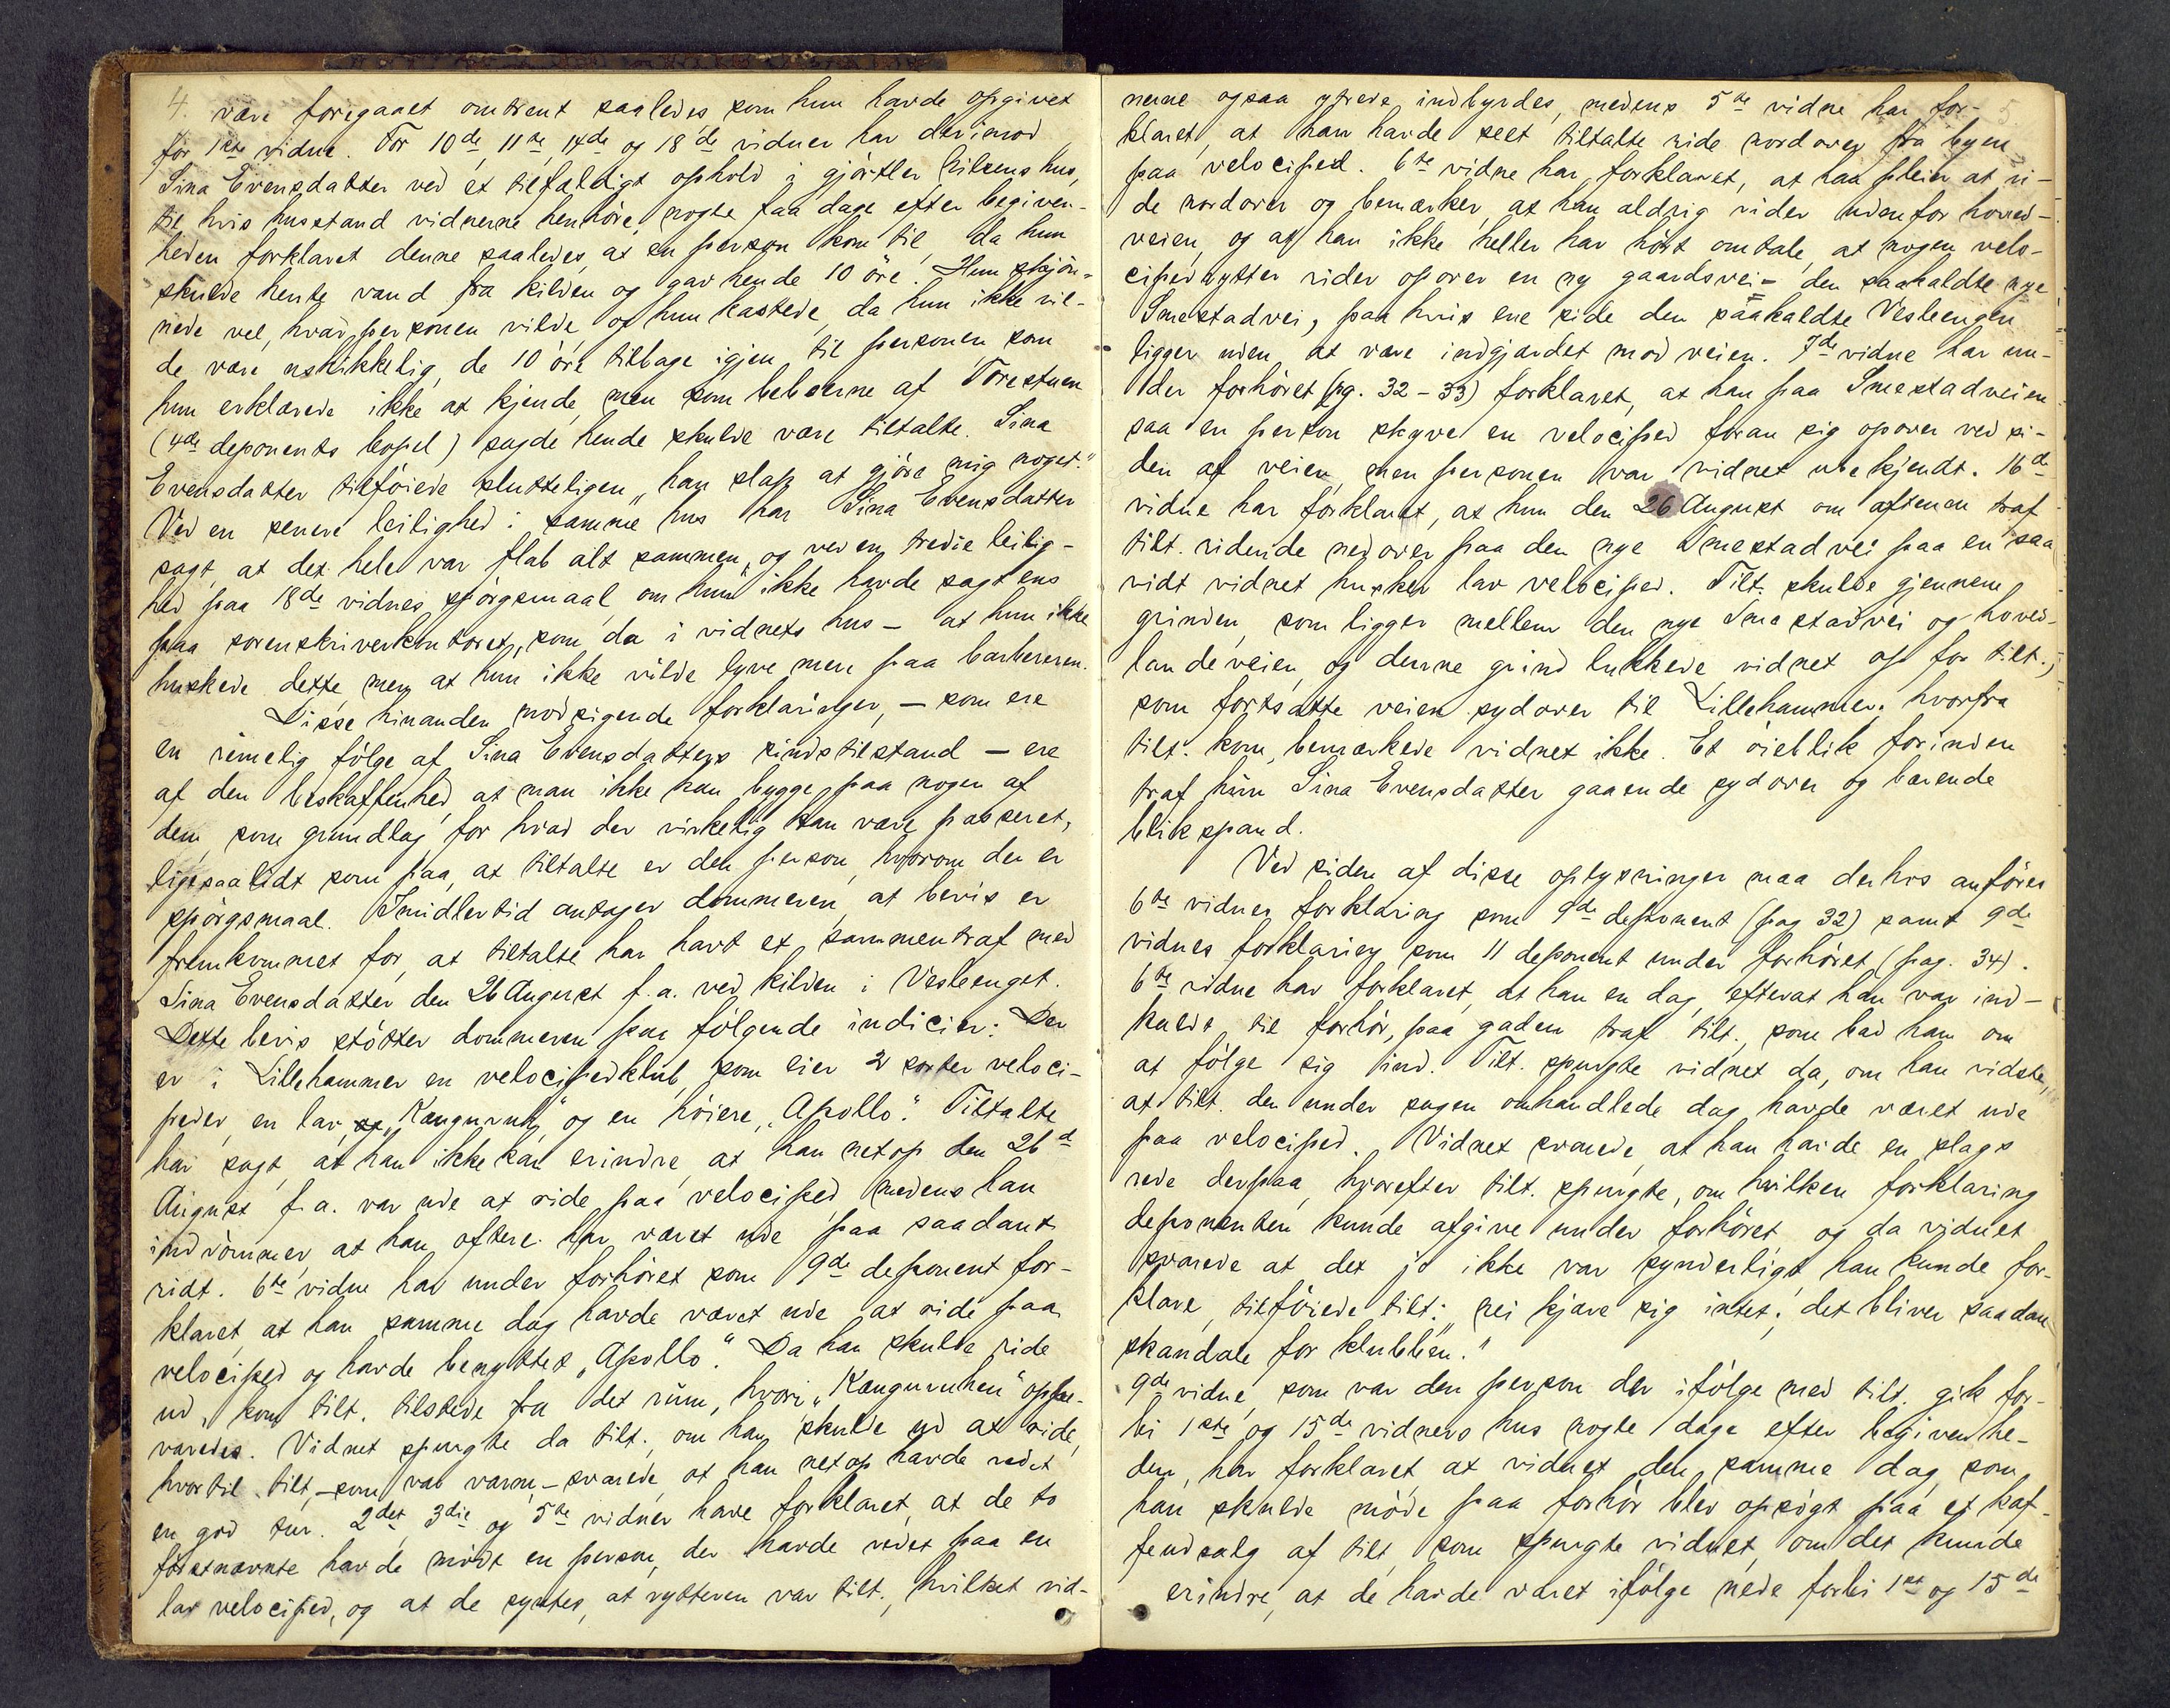 4.
være foregaaet omtrent saaledes som hun havde opgivet
for 1ste vidne. For 10de, 11te, 14de og 18de vidner har derimod
Sina Evensdatter ved et tilfældigt ophold i gjørtler Nilsens hus,
til hvis husstand vidnerne henhøre, nogle faa dage efter begiven-
heden forklaret denne saaledes, at en person kom til, da hun
skulde hente vand fra kilden og gav hende 10 øre. Hun skjøn-
nede vel, hvad personen vilde, og hun kastede, da hun ikke vil-
de være uskikkelig, de 10 øre tilbage igjen til personen som
hun erklærede ikke at kjende, men som beboerne af Torestuen
(4de deponents bopel) sagde hende skulde være tiltalte. Sina
Evensdatter tilføiede slutteligen „han slap at gjöre mig noget."
Ved en senere leilighed i samme hus har Sina Evensdatter
sagt, at det hele var flab alt sammen, og ved en tredie leilig-
hed paa 18de vidnes spörgsmaal om hun ikke havde sagt ens
paa sorenskriverkontoret, som da i vidnets hus – at hun ikke
huskede dette, men at hun ikke vilde lyve mere paa barbereren.
Disse hinanden modsigende forklaringer, – som ere
en rimelig fölge af Sina Evensdatters sindstilstand – ere
af den beskaffenhed, at man ikke kan bygge paa nogen af
dem, som grundlag for hvad der virkelig kan være passeret,
ligesaalidt som paa, at tiltalte er den person, hvorom der er
spörgsmaal. Imidlertid antager dommeren, at bevis er
fremkommet for, at tiltalte har havt et sammentraf med
Sina Evensdatter den 26 August f.a. ved kilden i Vesleenget.
Dette bevis stötter dommeren paa fölgende indicier: Der
er i Lillehammer en velocipedklub, som eier 2 sorter veloci-
peder, en lav, „Kænguruh," og en höiere, „Apollo." Tiltalte
har sagt, at han ikke kan erindre, at han netop den 26d
August f.a. var ude at ride paa velociped, medens han
indrömmer, at han oftere har været ude paa saadant
ridt. 6te vidne har under forhöret som 9de deponent for-
klaret, at han samme dag havde været ude at ride paa
velociped og havde benyttet „Apollo." Da han skulde ride
ud, kom tilt. tilstede fra det rum, hvori „Kænguruhen" opbe-
varedes. Vidnet spurgte da tilt., om han skulde ud at ride,
hvortil tilt, – som var varm, – svarede, at han netop havde redet
en god tur. 2det, 3die og 5te vidner have forklaret, at de to
förstnævnte havde mödt en person, der havde redet paa en
lav velociped, og at de syntes, at rytteren var tilt., hvilket vid-
5.
nerne ogsaa ytrede indbyrdes, medens 5te vidne har for-
klaret, at han havde seet tiltalte ride nordover fra byen
paa velociped. 6te vidne har forklaret, at han pleier at ri-
de nordover og bemærker, at han aldrig rider udenfor hoved-
veien, og at han ikke heller har hört omtale, at nogen velo-
cipedrytter rider opover en ny gaardsvei – den saakaldte nye
Smestadvei, paa hvis ene side den saakaldte Vesleengen
ligger uden at være indgjærdet mod veien. 7de vidne har un-
der forhöret (pg. 32–33) forklaret, at han paa Smestadveien
saa en person skyve en velociped foran sig opover ved si-
den af veien, men personen var vidnet ubekjendt. 16de
vidne har forklaret, at hun den 26 August om aftenen traf
tilt. ridende nedover paa den nye Smestadvei paa en saa
vidt vidnet husker lav velociped. Tilt. skulde gjennem
grinden, som ligger mellem den nye Smestadvei og hoved-
landeveien, og denne grind lukkede vidnet op for tilt.,
som fortsatte veien sydover til Lillehammer; hvorfra
tilt. kom, bemærkede vidnet ikke. Et öieblik forinden
traf hun Sina Evensdatter gaaende sydover og bærende
blikspand.
Ved siden af disse oplysninger maa derhos anföres
6te vidnes forklaring som 9de deponent (pag 32) samt 9de
vidnes forklaring som 11 deponent under forhöret (pag. 34).
6te vidne har forklaret, at han en dag, efterat han var ind-
kaldt til forhör, paa gaden traf tilt., som bad ham om
at fölge sig ind. Tilt. spurgte vidnet da, om han vidste,
at tilt. den under sagen omhandlede dag havde været ude
paa velociped. Vidnet svarede, at han havde en slags
rede derpaa, hvorefter tilt. spurgte, om hvilken forklaring
deponenten kunde afgive under forhöret, og da vidnet
svarede at det jo ikke var synderligt han kunde for-
klare, tilföiede tilt: „nei kjære sig intet; det bliver saadan
skandale for klubben."
9de vidne, som var den person der ifölge med tilt. gik for-
bi 1ste og 15de vidners hus nogle dage efter begivenhe-
den, har forklaret, at vidnet den samme dag, som
han skulde möde paa forhör blev opsögt paa et kaf-
feudsalg af tilt, som spurgte vidnet, om det kunde
erindre, at de havde været ifölge nede forbi 1ste og 15de